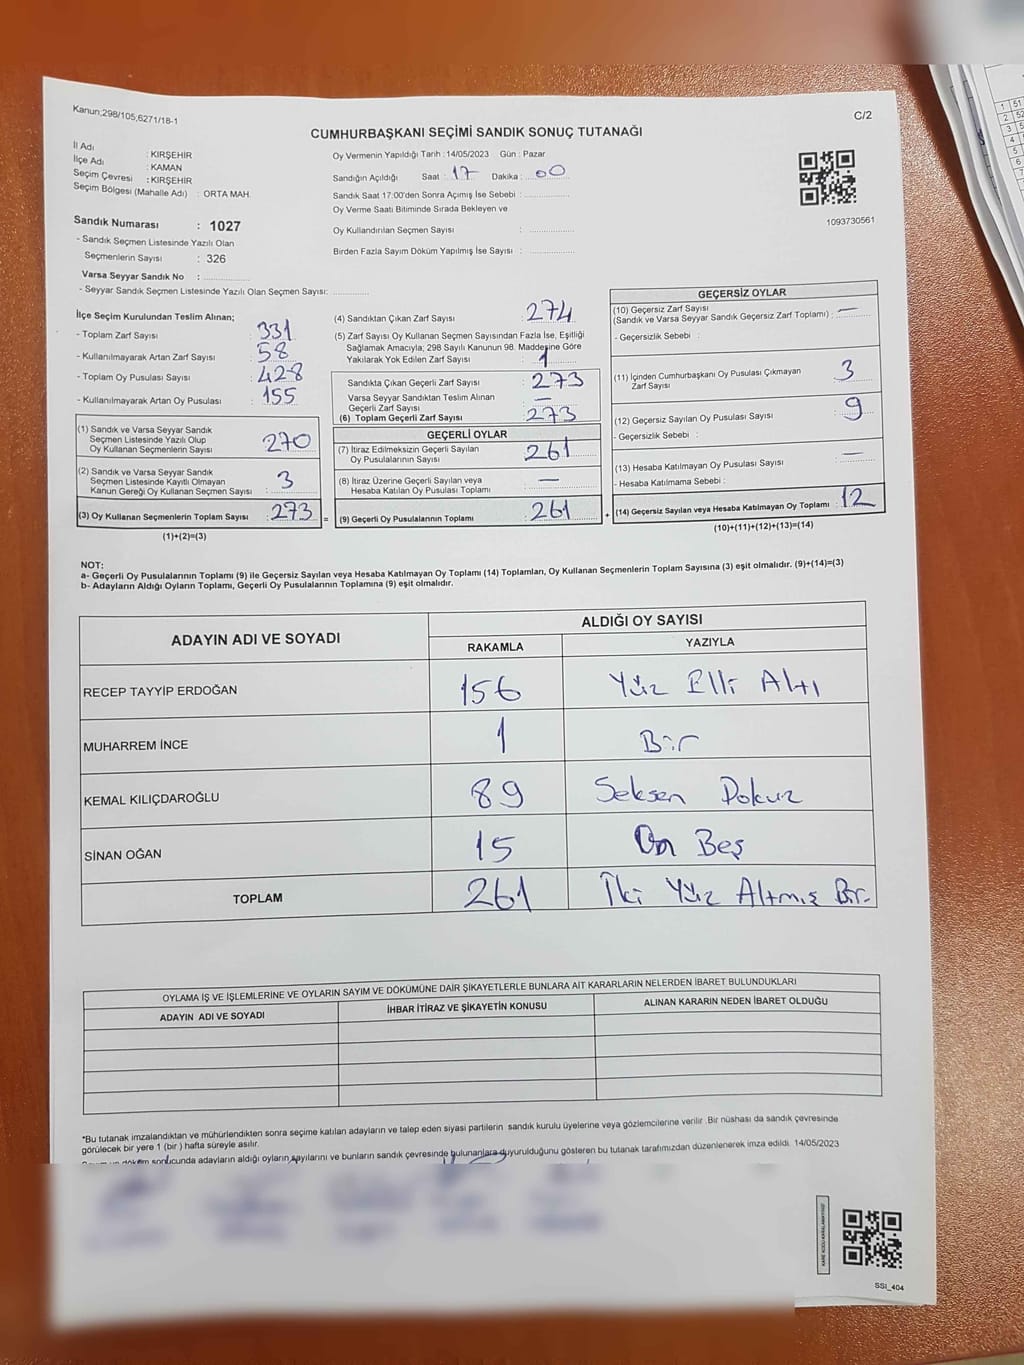 Kanun;298/105,6271/18-1
C/2
CUMHURBAŞKANI SEÇİMİ SANDIK SONUÇ TUTANAĞI
İl Adı : KIRŞEHİR
İlçe Adı : KAMAN
Seçim Çevresi : KIRŞEHİR
Seçim Bölgesi (Mahalle Adı) : ORTA MAH.
Sandık Numarası : 1027
- Sandık Seçmen Listesinde Yazılı Olan
Seçmenlerin Sayısı : 326
Varsa Seyyar Sandık No :
- Seyyar Sandık Seçmen Listesinde Yazılı Olan Seçmen Sayısı:
Oy Vermenin Yapıldığı Tarih : 14/05/2023 Gün : Pazar
Sandığın Açıldığı Saat : 17 Dakika : 00
Sandık Saat 17:00'den Sonra Açımış İse Sebebi :
Oy Verme Saati Bitiminde Sırada Bekleyen ve
Oy Kullandırılan Seçmen Sayısı :
Birden Fazla Sayım Döküm Yapılmış İse Sayısı :
1093730561
İlçe Seçim Kurulundan Teslim Alınan;
- Toplam Zarf Sayısı : 331
- Kullanılmayarak Artan Zarf Sayısı : 58
- Toplam Oy Pusulası Sayısı : 428
- Kullanılmayarak Artan Oy Pusulası : 155
(1) Sandık ve Varsa Seyyar Sandık
Seçmen Listesinde Yazılı Olup
Oy Kullanan Seçmenlerin Sayısı : 270
(2) Sandık ve Varsa Seyyar Sandık
Seçmen Listesinde Kayıtlı Olmayan
Kanun Gereği Oy Kullanan Seçmen Sayısı : 3
(3) Oy Kullanan Seçmenlerin Toplam Sayısı : 273
(1)+(2)=(3)
=
(4) Sandıktan Çıkan Zarf Sayısı : 274
(5) Zarf Sayısı Oy Kullanan Seçmen Sayısından Fazla İse, Eşitliği
Sağlamak Amacıyla; 298 Sayılı Kanunun 98. Maddesine Göre
Yakılarak Yok Edilen Zarf Sayısı : 1
Sandıkta Çıkan Geçerli Zarf Sayısı : 273
Varsa Seyyar Sandıktan Teslim Alınan
Geçerli Zarf Sayısı : —
(6) Toplam Geçerli Zarf Sayısı : 273
GEÇERLİ OYLAR
(7) İtiraz Edilmeksizin Geçerli Sayılan
Oy Pusulalarının Sayısı : 261
(8) İtiraz Üzerine Geçerli Sayılan veya
Hesaba Katılan Oy Pusulası Toplamı : —
(9) Geçerli Oy Pusulalarının Toplamı : 261
+
GEÇERSİZ OYLAR
(10) Geçersiz Zarf Sayısı
(Sandık ve Varsa Seyyar Sandık Geçersiz Zarf Toplamı) : —
- Geçersizlik Sebebi :
(11) İçinden Cumhurbaşkanı Oy Pusulası Çıkmayan
Zarf Sayısı : 3
(12) Geçersiz Sayılan Oy Pusulası Sayısı : 9
- Geçersizlik Sebebi :
(13) Hesaba Katılmayan Oy Pusulası Sayısı : —
- Hesaba Katılmama Sebebi :
(14) Geçersiz Sayılan veya Hesaba Katılmayan Oy Toplamı : 12
(10)+(11)+(12)+(13)=(14)
NOT:
a- Geçerli Oy Pusulalarının Toplamı (9) ile Geçersiz Sayılan veya Hesaba Katılmayan Oy Toplamı (14) Toplamları, Oy Kullanan Seçmenlerin Toplam Sayısına (3) eşit olmalıdır. (9)+(14)=(3)
b- Adayların Aldığı Oyların Toplamı, Geçerli Oy Pusulalarının Toplamına (9) eşit olmalıdır.
ADAYIN ADI VE SOYADI
ALDIĞI OY SAYISI
RAKAMLA YAZIYLA
RECEP TAYYİP ERDOĞAN 156 Yüz Elli Altı
MUHARREM İNCE 1 Bir
KEMAL KILIÇDAROĞLU 89 Seksen Dokuz
SİNAN OĞAN 15 On Beş
TOPLAM 261 İki Yüz Altmış Bir
OYLAMA İŞ VE İŞLEMLERİNE VE OYLARIN SAYIM VE DÖKÜMÜNE DAİR ŞİKAYETLERLE BUNLARA AİT KARARLARIN NELERDEN İBARET BULUNDUKLARI
ADAYIN ADI VE SOYADI İHBAR İTİRAZ VE ŞİKAYETİN KONUSU ALINAN KARARIN NEDEN İBARET OLDUĞU
*Bu tutanak imzalandıktan ve mühürlendikten sonra seçime katılan adayların ve talep eden siyasi partilerin sandık kurulu üyelerine veya gözlemcilerine verilir .Bir nüshası da sandık çevresinde
görülecek bir yere 1 (bir ) hafta süreyle asılır.
sonucunda adayların aldığı oyların sayılarını ve bunların sandık çevresinde bulunanlara duyurulduğunu gösteren bu tutanak tarafımızdan düzenlenerek imza edildi. 14/05/2023
SSI_404